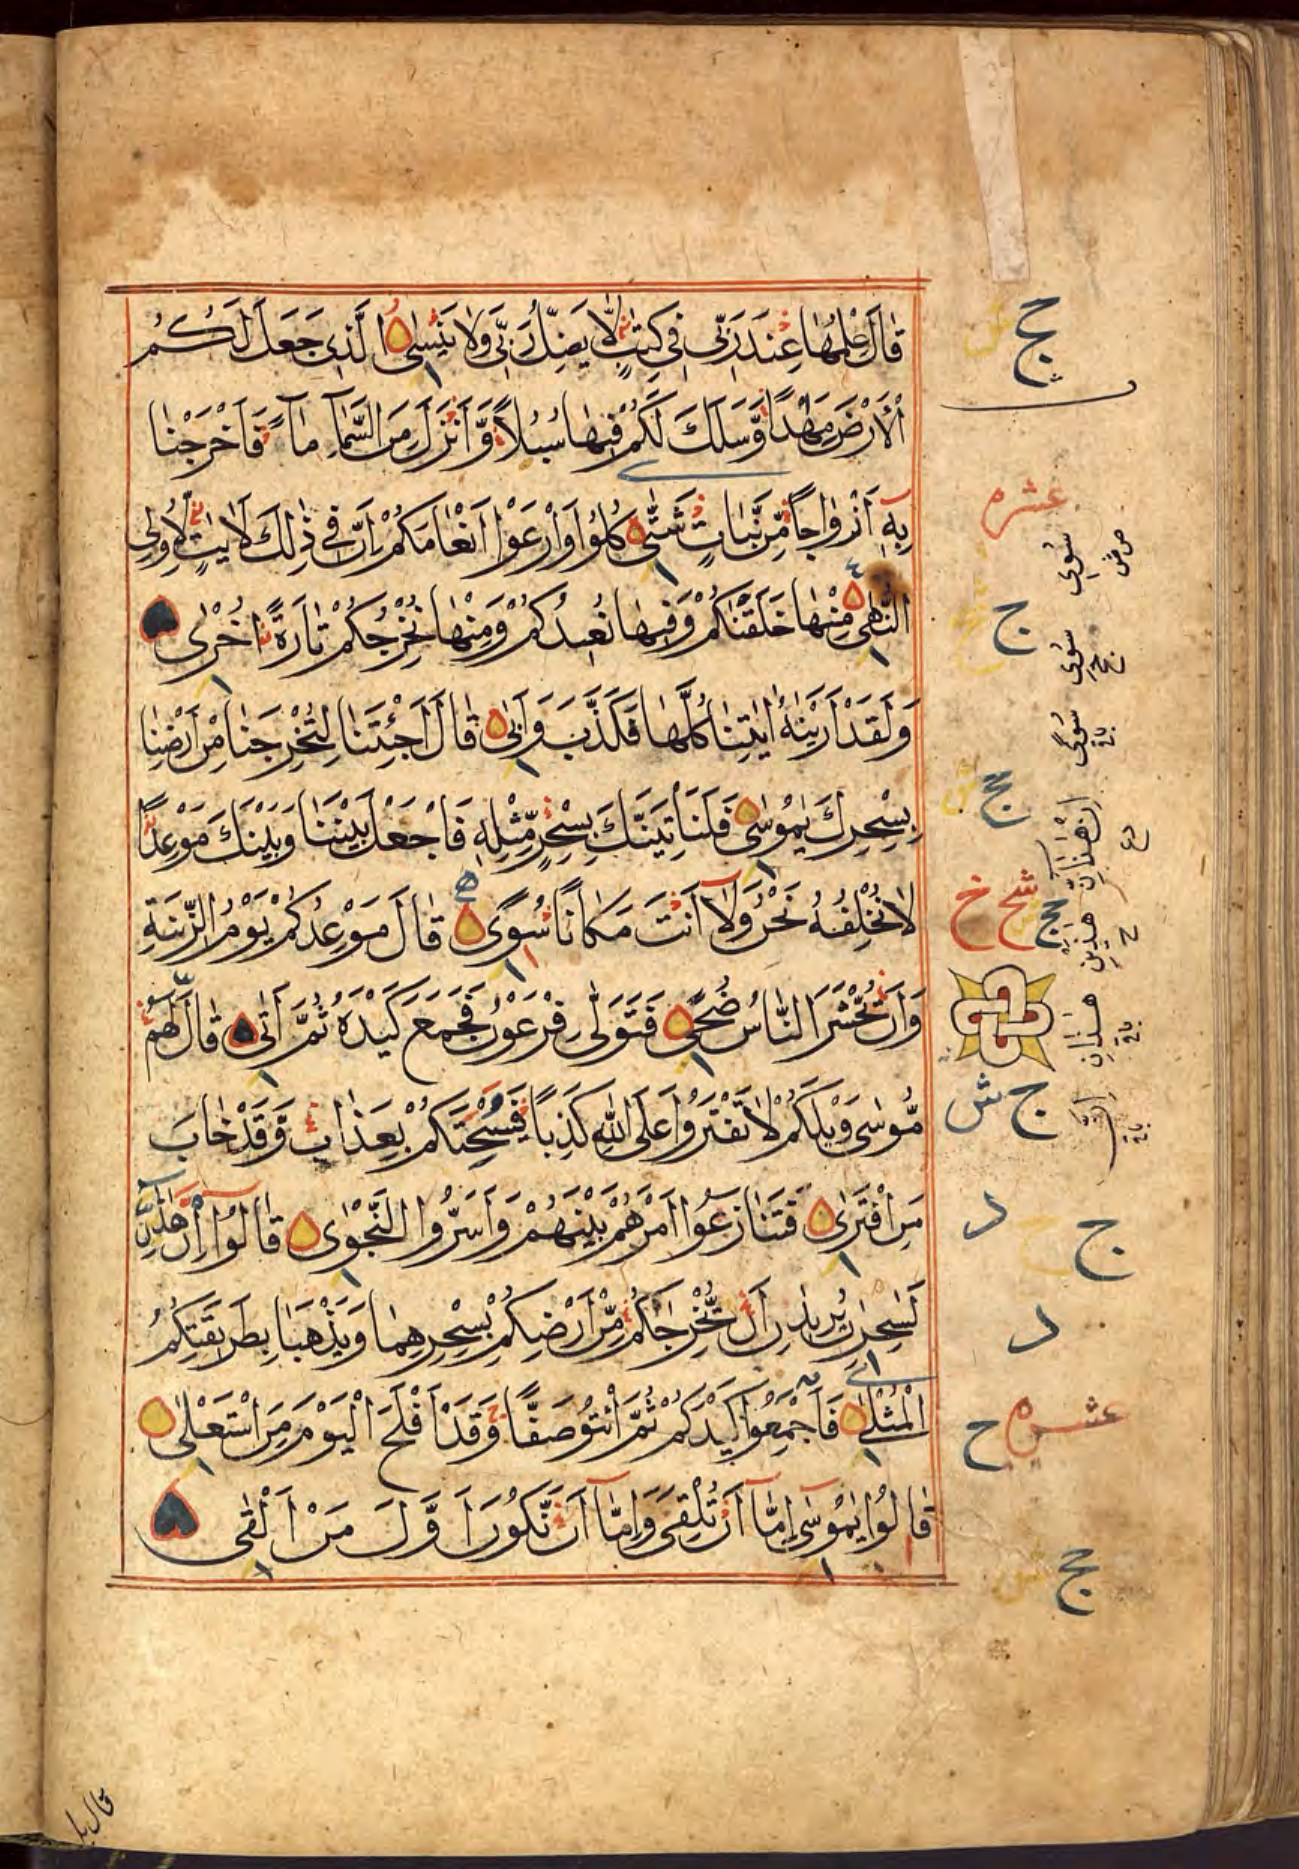 قَالَ عِلْمُهَا عِنْدَ رَبِّي فِي كِتٰبٍ لَّا يَضِلُّ رَبِّي وَلَا يَنْسٰى الَّذِي جَعَلَ لَكُمُ
الْاَرْضَ مِهٰدًا وَّسَلَكَ لَكُمْ فِيهَا سُبُلًا وَّاَنْزَلَ مِنَ السَّمَآءِ مَآءً فَاَخْرَجْنَا
بِهٖ اَزْوَاجًا مِّنْ نَّبَاتٍ شَتّٰى كُلُوْا وَارْعَوْا اَنْعَامَكُمْ اِنَّ فِي ذٰلِكَ لَاٰيٰتٍ لِّاُولِي
النُّهٰى مِنْهَا خَلَقْنٰكُمْ وَفِيهَا نُعِيدُكُمْ وَمِنْهَا نُخْرِجُكُمْ تَارَةً اُخْرٰى
وَلَقَدْ اَرَيْنٰهُ اٰيٰتِنَا كُلَّهَا فَكَذَّبَ وَاَبٰى قَالَ اَجِئْتَنَا لِتُخْرِجَنَا مِنْ اَرْضِنَا
بِسِحْرِكَ يٰمُوْسٰى فَلَنَاْتِيَنَّكَ بِسِحْرٍ مِّثْلِهٖ فَاجْعَلْ بَيْنَنَا وَبَيْنَكَ مَوْعِدًا
لَّا نُخْلِفُهٗ نَحْنُ وَلَآ اَنْتَ مَكَانًا سُوًى قَالَ مَوْعِدُكُمْ يَوْمُ الزِّيْنَةِ
وَاَنْ تُحْشَرَ النَّاسُ ضُحًى فَتَوَلّٰى فِرْعَوْنُ فَجَمَعَ كَيْدَهٗ ثُمَّ اَتٰى قَالَ لَهُمْ
مُّوْسٰى وَيْلَكُمْ لَا تَفْتَرُوْا عَلَى اللّٰهِ كَذِبًا فَيُسْحِتَكُمْ بِعَذَابٍ وَّقَدْ خَابَ
مَنِ افْتَرٰى فَتَنَازَعُوْا اَمْرَهُمْ بَيْنَهُمْ وَاَسَرُّوا النَّجْوٰى قَالُوْا اِنْ هٰذٰنِ
لَسٰحِرٰنِ يُرِيْدٰنِ اَنْ يُّخْرِجٰكُمْ مِّنْ اَرْضِكُمْ بِسِحْرِهِمَا وَيَذْهَبَا بِطَرِيْقَتِكُمُ
الْمُثْلٰى فَاَجْمِعُوْا كَيْدَكُمْ ثُمَّ ائْتُوْا صَفًّا وَقَدْ اَفْلَحَ الْيَوْمَ مَنِ اسْتَعْلٰى
قَالُوْا يٰمُوْسٰى اِمَّآ اَنْ تُلْقِيَ وَاِمَّآ اَنْ نَّكُوْنَ اَوَّلَ مَنْ اَلْقٰى
عشره
سُوى
سُوى
سوى
هٰذَيْنِ
هٰذَانِ
عشره
قال بل